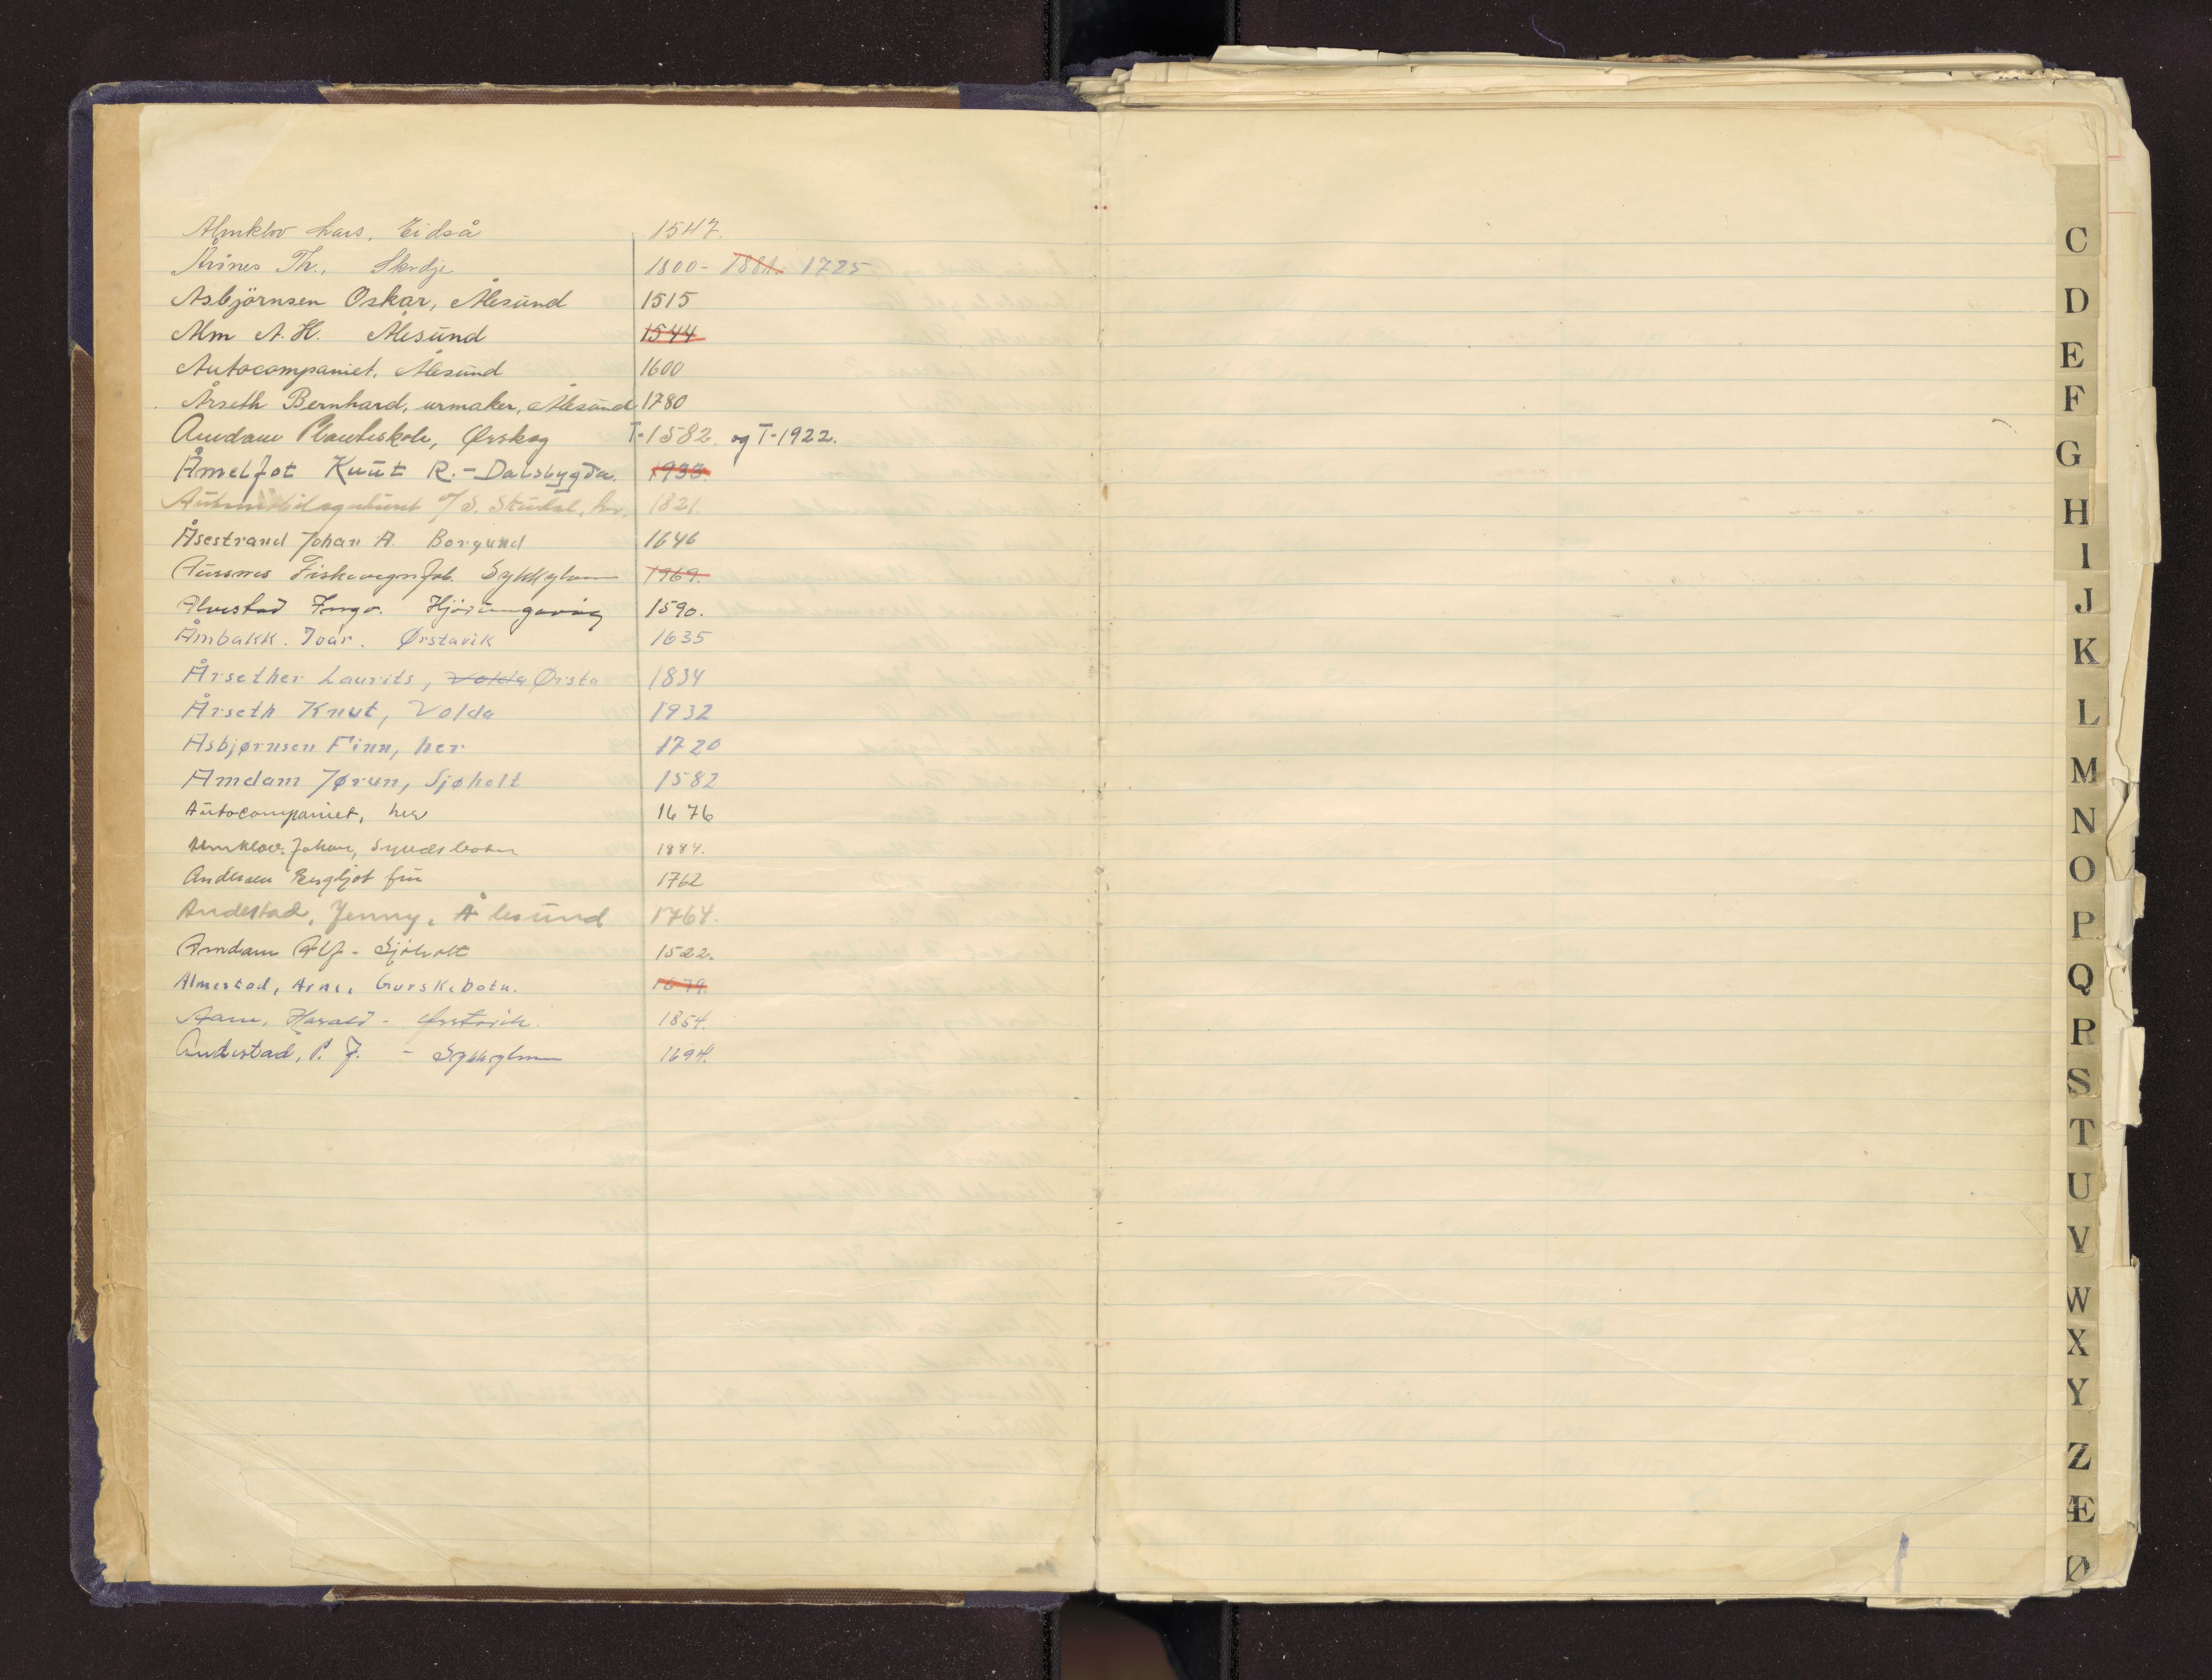 Almklov Lars, Eidså 1547.
Årines Th., Skodje 1800- 1881. 1725
Asbjörnsen Oskar, Ålesund 1515
Alm A. H. Ålesund 1544
Autocompaniet, Ålesund 1600
Årseth Bernhard, urmaker, Ålesund 1780
Amdam Planteskole, Ørskog T-1582. og T-1922.
Åmelfot Knut R. - Dalsbygda. 1933.
A/S. 1821.
Åsestrand Johan A. Borgund 1646
Aursnes Fiskevegnfab. Sykkylven 1969.
Alvestad Ingv. Hjörungavåg 1590.
Åmbakk. Ivar. Ørstavik 1635
Årsether Laurits, Volda Ørsta 1834
Årseth Knut, Volda 1932
Asbjørnsen Finn, her 1720
Amdam Jørun, Sjøholt 1582
Autocompaniet, her 1676
Almklov. Johan, Syvdsbotn 1884.
Andersen Bergljot fru 1762
Andestad, Jenny, Ålesund 1764.
Amdam Alf - Sjöholt 1522.
Almestad, Arne, Gurskebotn. 1679.
Aam, Harald - Ørstvik. 1854.
Andestad, P. J. - Sykkylven 1694.
C
D
E
F
G
H
I
J
K
L
M
N
O
P
Q
R
S
T
U
V
W
X
Y
Z
Æ
Ø